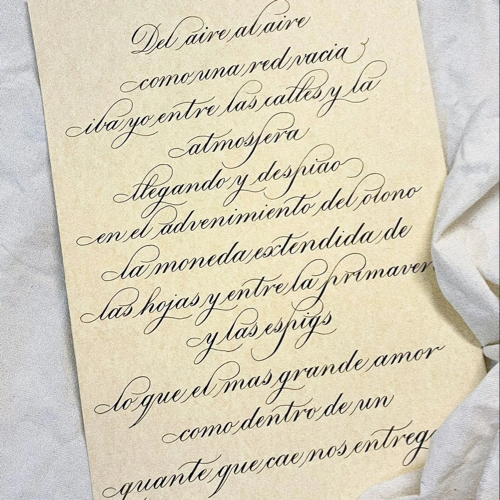 Del aire al aire
como una red vacia
iba yo entre las calles y la
atmosfera
llegando y despiao
en el advenimiento del otono
la moneda extendida de
las hojas y entre la primaver
y las espigs
lo que el mas grande amor
como dentro de un
guante que cae nos entreg